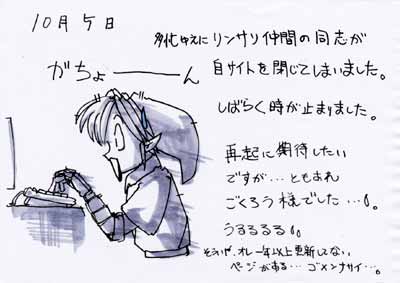 10月5日
多忙ゆえにリンサリ仲間の同志が
がちょーーーん
自サイトを閉じてしまいました。
しばらく時が止まりました。
再起に期待したい
ですが…ともあれ
ごくろう様でした…。
うるるるる。
そういや、オレ一年以上更新してない
ページがある…ゴメンナサイ…。